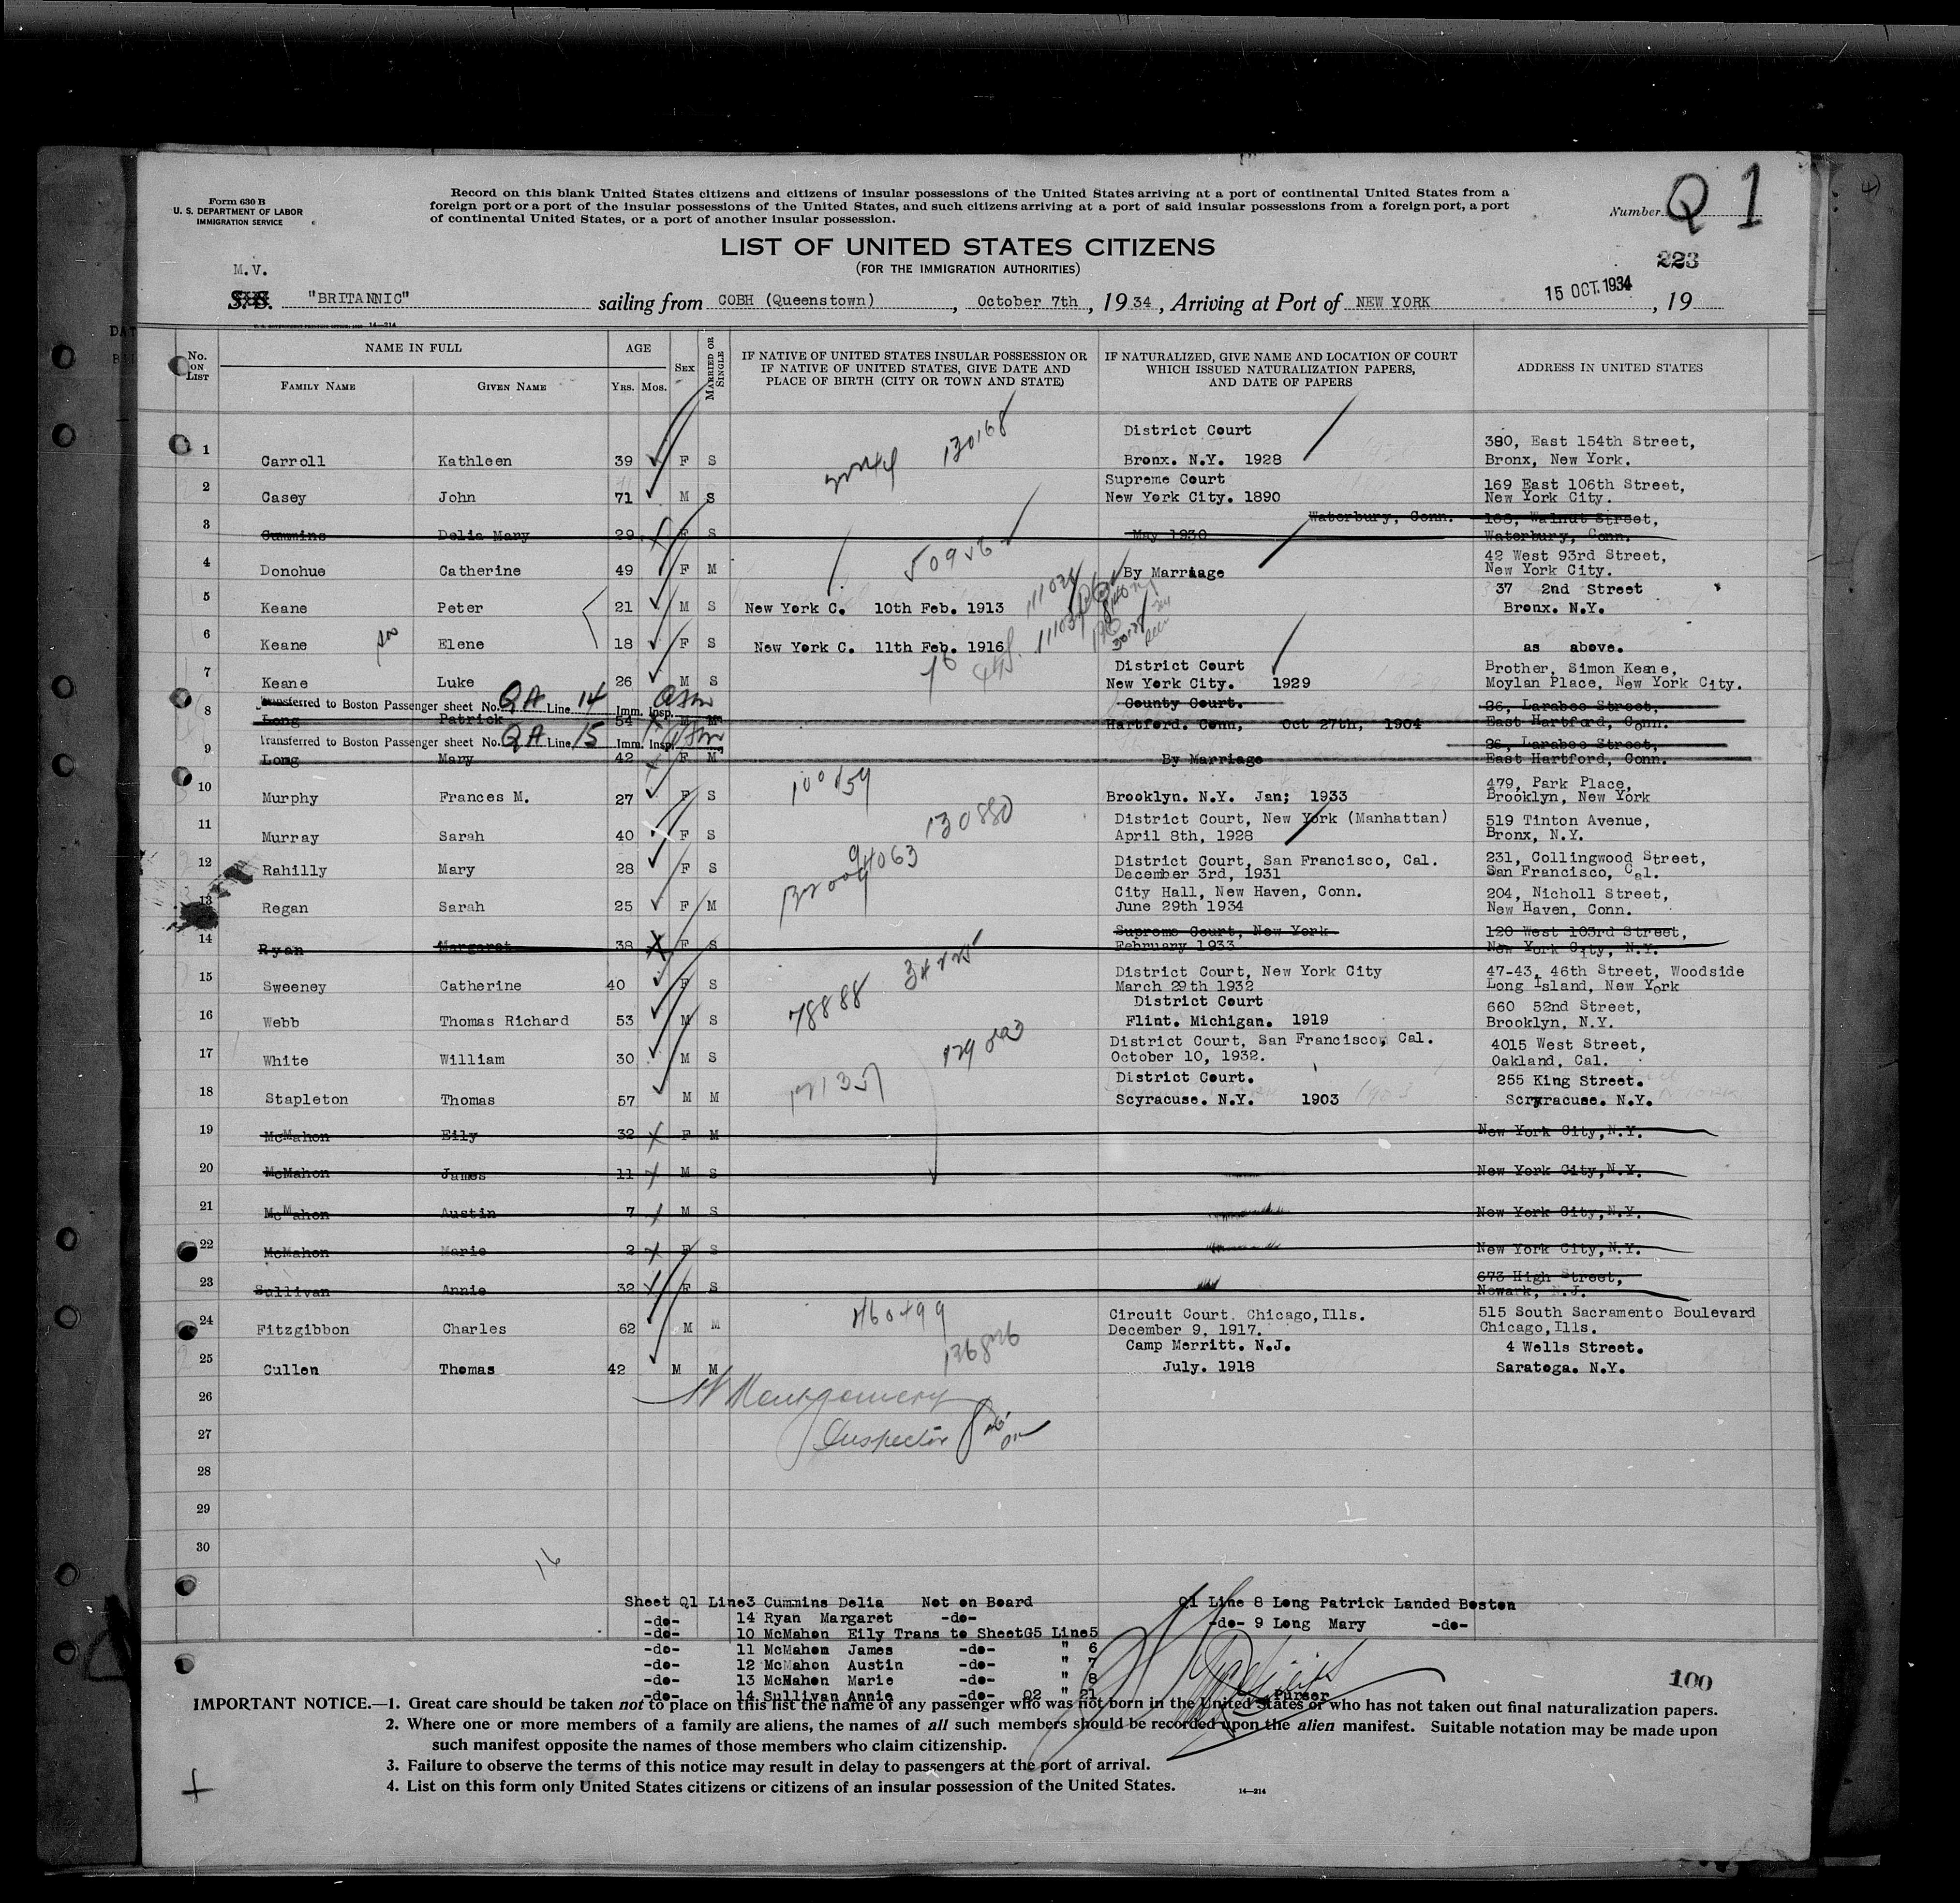 Form 630 B
U. S. DEPARTMENT OF LABOR
IMMIGRATION SERVICE
Record on this blank United States citizens and citizens of insular possessions of the United States arriving at a port of continental United States from a
foreign port or a port of the insular possessions of the United States, and such citizens arriving at a port of said insular possessions from a foreign port, a port
of continental United States, or a port of another insular possession.
Number Q 1
LIST OF UNITED STATES CITIZENS
(FOR THE IMMIGRATION AUTHORITIES)
223
M.V.
S.S. "BRITANNIC" sailing from COBH (Queenstown), October 7th, 1934, Arriving at Port of NEW YORK 15 OCT. 1934, 19
No. ON LIST
NAME IN FULL
FAMILY NAME
GIVEN NAME
AGE
YRS. MOS.
SEX
MARRIED OR SINGLE
IF NATIVE OF UNITED STATES INSULAR POSSESSION OR
IF NATIVE OF UNITED STATES, GIVE DATE AND
PLACE OF BIRTH (CITY OR TOWN AND STATE)
IF NATURALIZED, GIVE NAME AND LOCATION OF COURT
WHICH ISSUED NATURALIZATION PAPERS,
AND DATE OF PAPERS
ADDRESS IN UNITED STATES
District Court 380, East 154th Street,
1 Carroll Kathleen 39 F S 130168 Bronx. N.Y. 1928 Bronx, New York.
Supreme Court 169 East 106th Street,
2 Casey John 71 M S New York City. 1890 New York City.
Waterbury, Conn. 108, Walnut Street,
3 Cummins Delia Mary 29 F S May 1930 Waterbury, Conn.
42 West 93rd Street,
4 Donohue Catherine 49 F M By Marriage New York City.
37 2nd Street
5 Keane Peter 21 M S New York C. 10th Feb. 1913 Bronx. N.Y.
6 Keane Elene 18 F S New York C. 11th Feb. 1916 as above.
District Court Brother, Simon Keane,
7 Keane Luke 26 M S New York City. 1929 Moylan Place, New York City.
Transferred to Boston Passenger sheet No. QA Line 14 Imm. Insp. County Court. 26, Larabee Street,
8 Long Patrick 54 M M Hartford. Conn, Oct 27th, 1904 East Hartford, Conn.
Transferred to Boston Passenger sheet No. QA Line 15 Imm. Insp. 26, Larabee Street,
9 Long Mary 42 F M By Marriage East Hartford, Conn.
479, Park Place,
10 Murphy Frances M. 27 F S Brooklyn. N.Y. Jan; 1933 Brooklyn, New York
District Court, New York (Manhattan) 519 Tinton Avenue,
11 Murray Sarah 40 F S 130880 April 8th, 1928 Bronx, N.Y.
District Court, San Francisco, Cal. 231, Collingwood Street,
12 Rahilly Mary 28 F S December 3rd, 1931 San Francisco, Cal.
City Hall, New Haven, Conn. 204, Nicholl Street,
13 Regan Sarah 25 F M June 29th 1934 New Haven, Conn.
Supreme Court, New York 120 West 103rd Street,
14 Ryan Margaret 38 F S February 1933 New York City, N.Y.
District Court, New York City 47-43, 46th Street, Woodside
15 Sweeney Catherine 40 F S March 29th 1932 Long Island, New York
District Court 660 52nd Street,
16 Webb Thomas Richard 53 M S 78888 Flint. Michigan. 1919 Brooklyn, N.Y.
District Court, San Francisco, Cal. 4015 West Street,
17 White William 30 M S October 10, 1932. Oakland, Cal.
District Court. 255 King Street.
18 Stapleton Thomas 57 M M Scyracuse. N.Y. 1903 Scryracuse. N.Y.
19 McMahon Eily 32 F M New York City, N.Y.
20 McMahon James 11 M S New York City, N.Y.
21 McMahon Austin 7 M S New York City, N.Y.
22 McMahon Marie 2 F S New York City, N.Y.
673 High Street,
23 Sullivan Annie 32 F S Newark, N.J.
Circuit Court, Chicago, Ills. 515 South Sacramento Boulevard
24 Fitzgibbon Charles 62 M M 460499 December 9, 1917. Chicago, Ills.
Camp Merritt. N.J. 4 Wells Street.
25 Cullen Thomas 42 M M July. 1918 Saratoga. N.Y.
26 Montgomery
27 Inspector
28
29
30
16
Sheet Q1 Line3 Cummins Delia Not on Board Q1 Line 8 Long Patrick Landed Boston
-do- 14 Ryan Margaret -do- -do- 9 Long Mary -do-
-do- 10 McMahon Eily Trans to SheetG5 Line5
-do- 11 McMahon James -do- " 6
-do- 12 McMahon Austin -do- " 7
-do- 13 McMahon Marie -do- " 8
-do- 14 Sullivan Annie -do- Q2 " 21 Purser
100
IMPORTANT NOTICE.—1. Great care should be taken not to place on this list the name of any passenger who was not born in the United States or who has not taken out final naturalization papers.
2. Where one or more members of a family are aliens, the names of all such members should be recorded upon the alien manifest. Suitable notation may be made upon
such manifest opposite the names of those members who claim citizenship.
3. Failure to observe the terms of this notice may result in delay to passengers at the port of arrival.
4. List on this form only United States citizens or citizens of an insular possession of the United States.
14—214